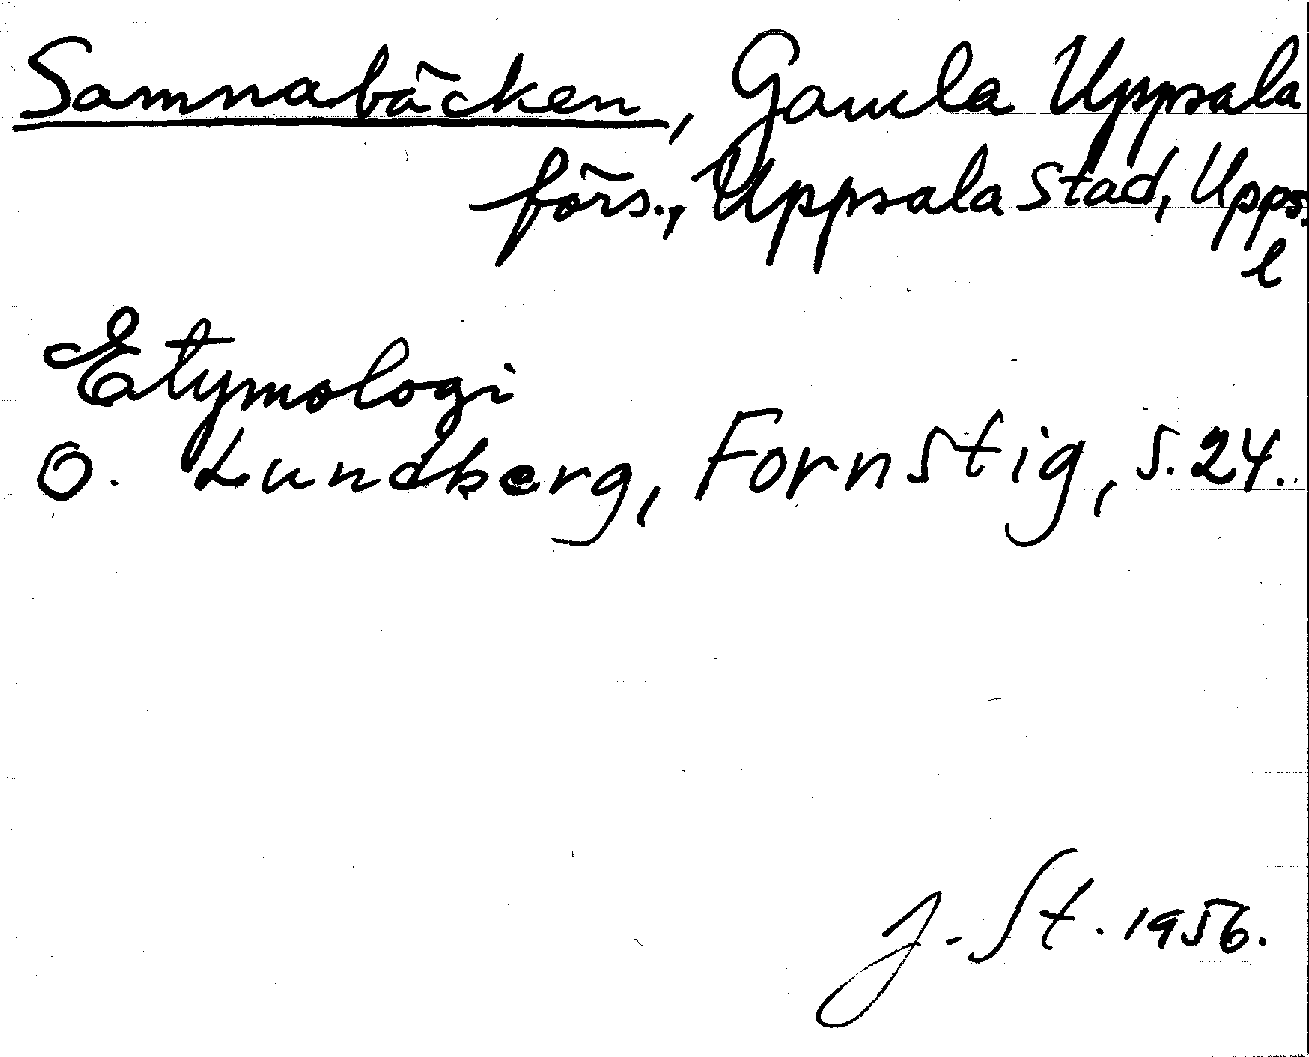 Samnabäcken, Gamla Uppsala
förs., Uppsala stad, Upps.
l
Etymologi
O. Lundberg, Fornstig, s. 24.
J. St. 1956.